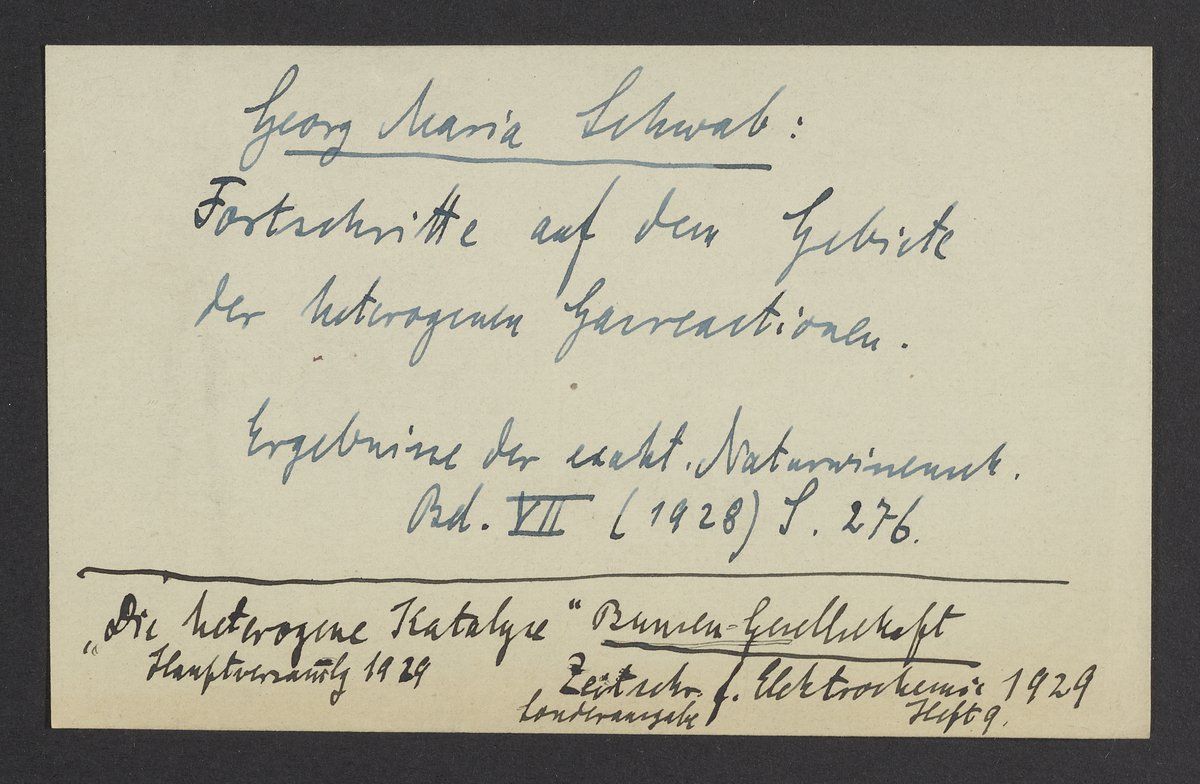 Georg Maria Schwab:
Fortschritte auf dem Gebiete
der heterogenen Gasreactionen.
Ergebnisse der exakt. Naturwissensch.
Bd. VII (1928) S. 276.
„Die heterogene Katalyse" Bunsen-Gesellschaft
Hauptversamlg 1929
Zeitschr. f. Elektrochemie 1929
Sonderausgabe Heft 9.